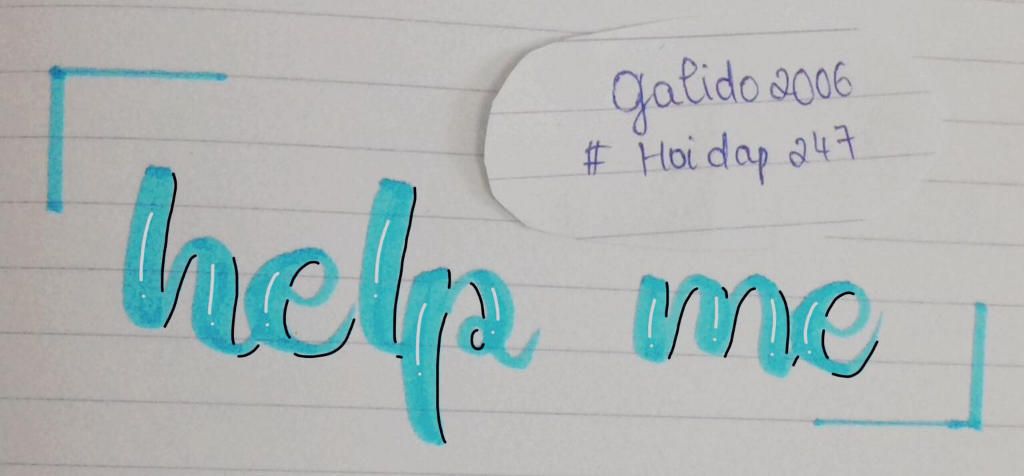 Galido 2006
# Hoidap 247
help me